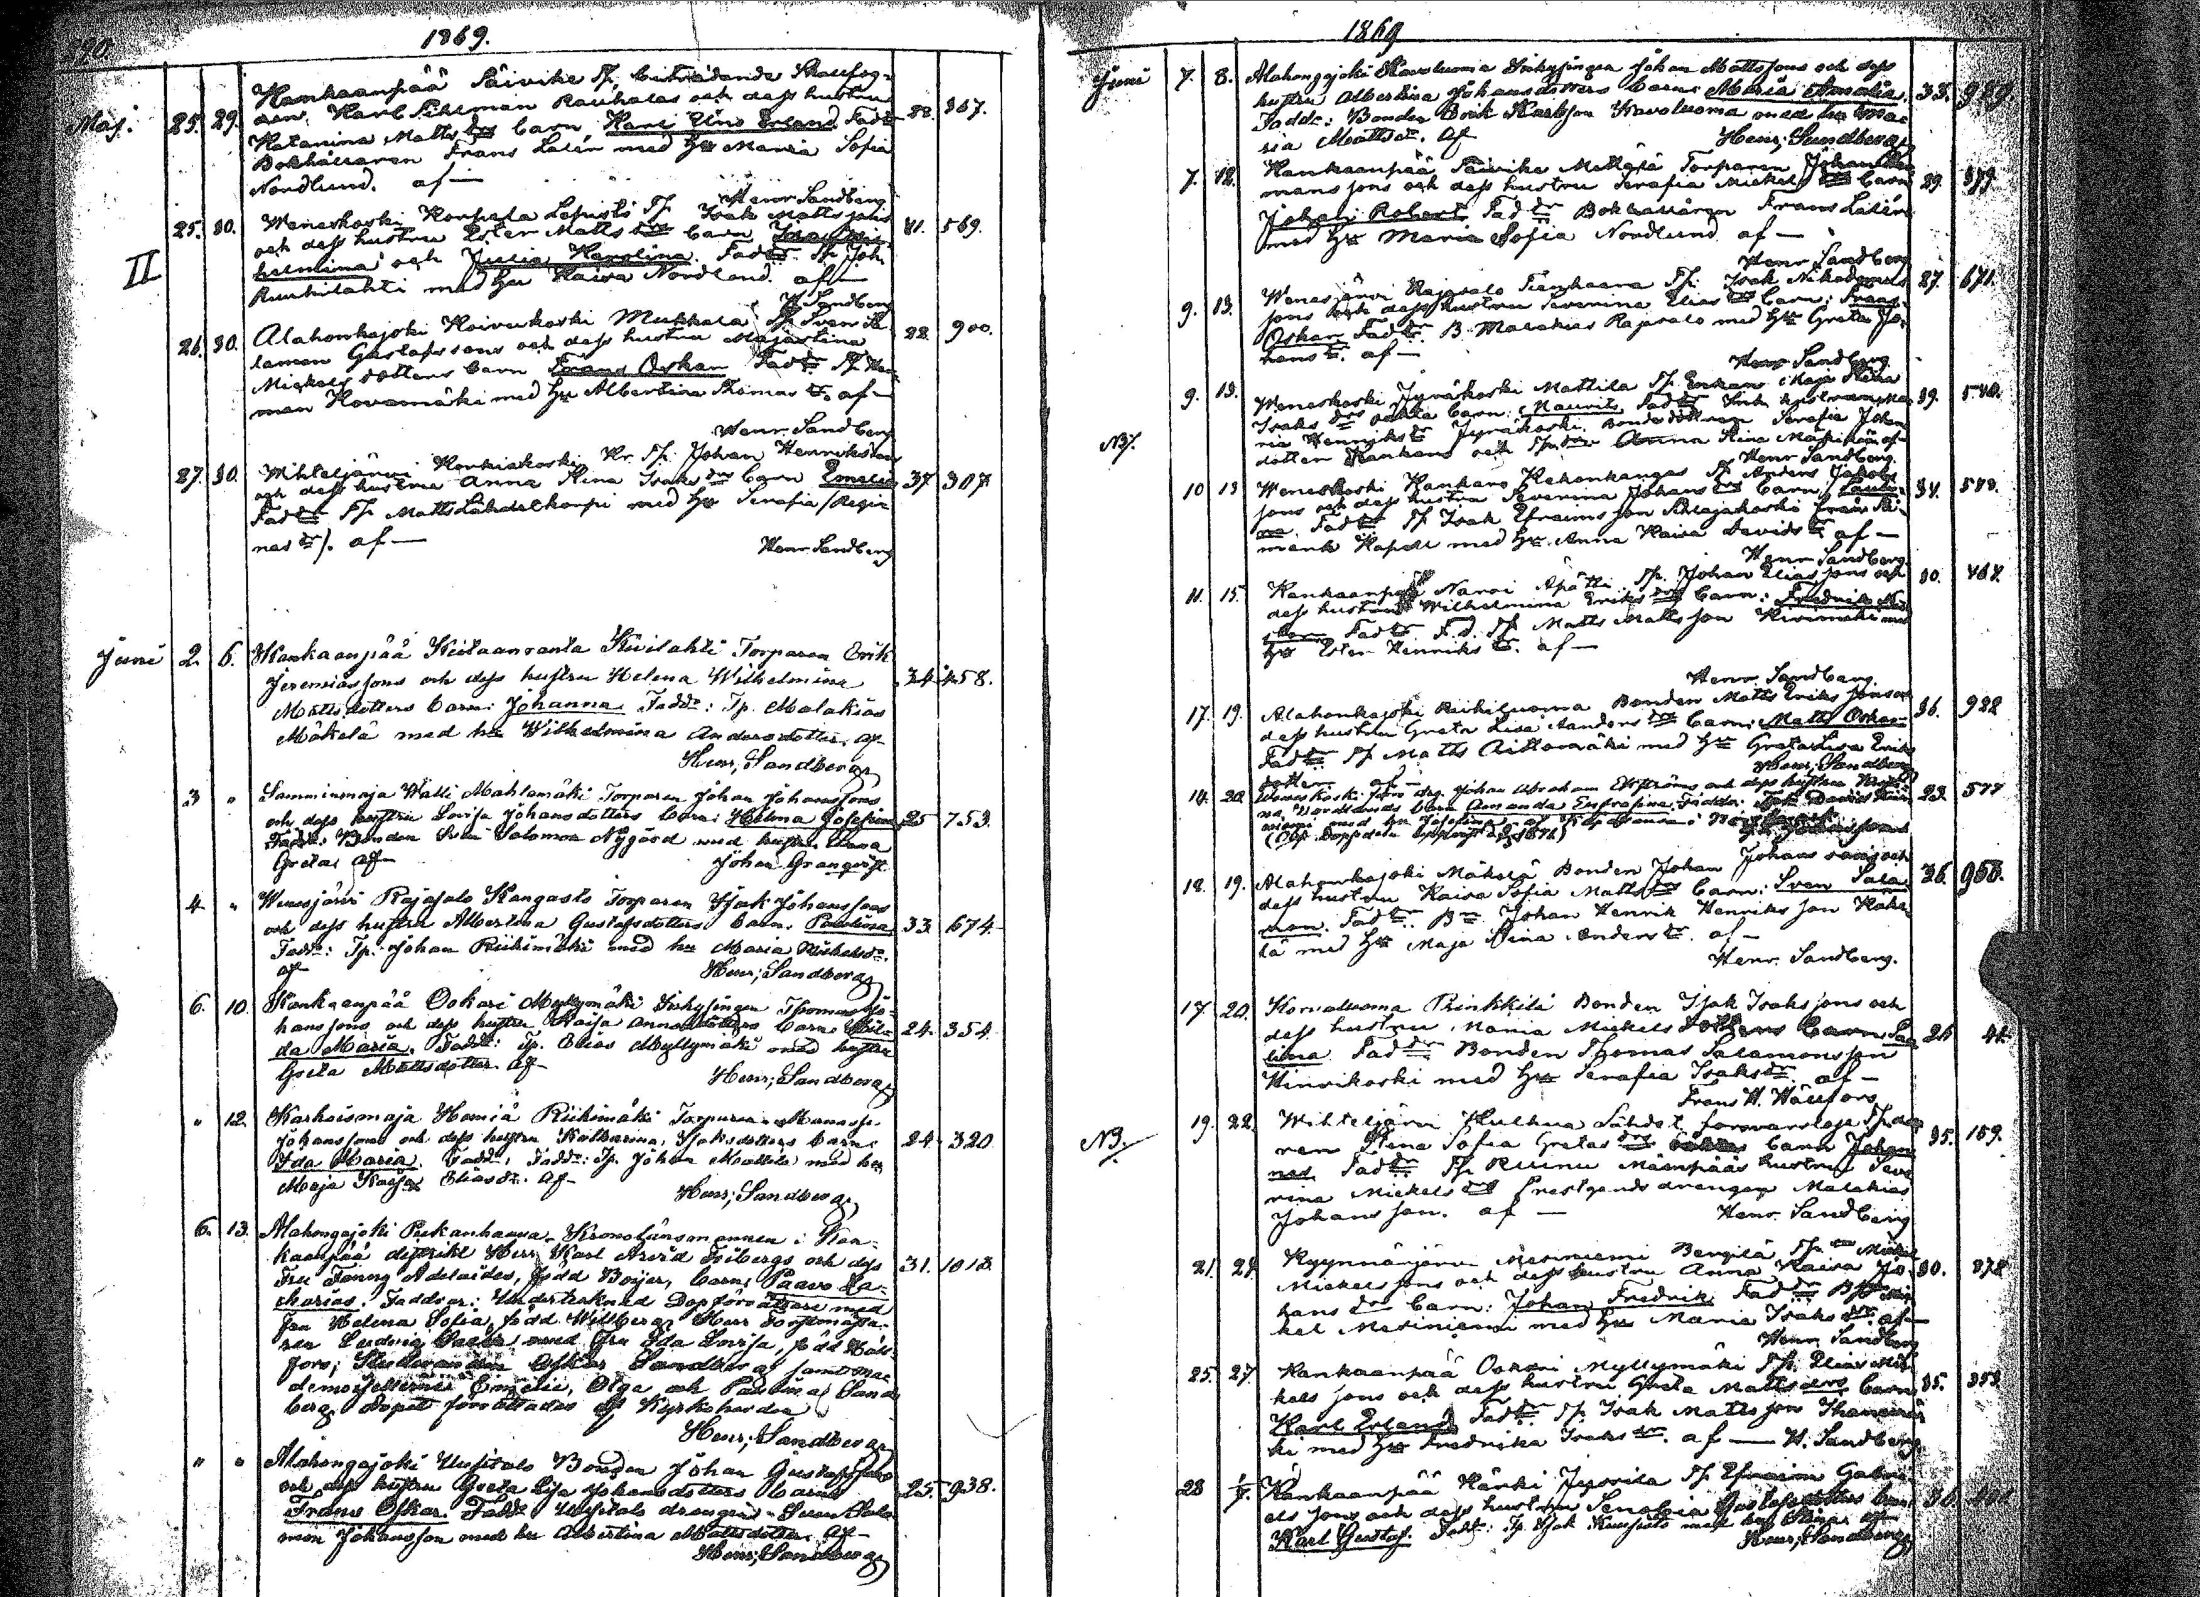 190.
1869.
Maj. 25. 29. Kankaanpää Päivike Tp. biträdande Skallfog-
den Karl Sihlman Rauhalas och dess hustru
Katarina Matts drs barn Karl Uno Erland. Fadd. 32. 367.
Bokhållaren Frans Lilén med hu Maria Sofia
Nordlund. af —
Henr Sandberg
25. 30. Weneskoski Korpela Lepistö Tp. Isak Matts sons
och dess hustru Ester Matts drs barn 41. 569.
II helmina och Julia Karolina. Fadd. Tp. Joh.
Ruuhilahti med hu Kaisa Nordlund. af —
H. Sandberg
26. 30. Alahonkajoki Koivukoski Mukkala Tp. Sven Sa
lamon Gustafssons och dess hustru Majastina 28. 900.
Mickels dotters barn Frans Oskar Fadd. Tp. Her
man Hovamäki med hu Albertina Thomas dr. af —
Henr. Sandberg
27. 30. Wihteljärvi Honkiakoski Kr. Tp. Johan Henriksons
och dess hustru Anna Stina Isaks drs barn Emelia 37. 307.
Fadd. Tp. Matts Lähdetkorpi med hu Serafia /Regin
nas dr/. af —
Henr Sandberg
Juni 2. 6. Kankaanpää Kiitaanranta Kivilahti Torparen Erik
Jeremias sons och dess hustru Helena Wilhelmina 34. 458.
Mattsdotters barn: Johanna. Fadd: Tp. Malakias
Mäkelä med hu Wilhelmina Andersdotter. af
Henr; Sandberg
3 " Samminmaja Walli Mahlamäki Torparen Johan Johanssons
och dess hustru Lovisa Johansdotters barn: Helma Josefina 25 753.
Fadd: Bonden Sven Salomon Nygård med hustru
Greta. af
Johan Granqvist
4. " Wenesjärvi Rajasalo Kangasto Torparen Isak Johanssons
och dess hustru Albertina Gustafsdotters barn: Paulina 33. 674.
Fadd: Tp. Johan Riikimäki med hu Maria Mickelsdr.
af
Henr; Sandberg
6. 10. Kankaanpää Oskari Myllymäki Inhysingen Thomas Jo-
hanssons och dess hustru Kaisa Annasdotters barn: Hil- 24. 354.
da Maria. Fadd: Tp. Elias Myllymäki med hustru
Greta Mattsdotter. af
Henr; Sandberg
" 12. Karhoismaja Homiå Riihimäki Torparen Manasse
Johanssons och dess hustru Katharina Isaksdotters barn: 24. 320
Ida Maria. Fadd: Tp. Johan Mattila med hu
Maja Kaisa Eliasdr. af
Henr; Sandberg
6. 13. Alahongojoki Pukanhaara Kronolänsmannen i Kan-
kaanpää distrikt Herr Karl Arvid Fribergs och dess 31. 1018.
Fru Fanny Adelaides, född Boijer, barn: Paavo Za-
charias. Faddrar: Undertecknad Dopförrättare med
fru Helena Sofia, född Willberg, Herr Forstmästa-
ren Ludvig med fru Ida Lovisa, född Häll-
fors; Studeranden Oskar Sandberg samt ma
demoisellerne Emelie, Olga och Paulina Sand
berg. Dopet förrättades af Kyrkoherden
Henr; Sandberg
" " Alahongojoki Uusitalo Bonden Johan Gustafssons
och dess hustru Greta Lisa Johansdotters barn: 25. 938.
Frans Oskar. Fadd: Uusitalo drengen Sven Salo
mon Johansson med hu Albertina Mattsdotter. af
Henr; Sandberg
1869
Juni 7. 8. Alahongojoki Kavoluoma Inhysingen Johan Mattssons och dess
hustru Albertina Johansdotters barn: Maria Amalia. 33. 989.
Fadd: Bonden Erik Karlsson Kavoluoma med hu Ma-
ria Mattsdr. af
Henr; Sandberg
7. 12. Kankaanpää Päivike Mettälä Torparen Johan
mans sons och dess hustru Serafia Mickels drs barn 29. 379.
Johan Robert. Fadd. Bokhållaren Frans Lilén
med hu Maria Sofia Nordlund. af —
Henr Sandberg
9. 13. Wenesjärvi Rajasalo Tienhaara Tp. Isak Nikodemus 27. 671.
sons och dess hustru Severina Elias drs barn: Frans
Oskar. Fadd. B. Malakias Rajasalo med hu Greta Jo-
hans dr. af —
Henr Sandberg
9. 13. Weneskoski Jyräkoski Mattila Tp. Enkan Maja Stina 39. 540.
Isaks drs oäkta barn: Maurits. Fadd. Inh. hustrun Ma
NB. ria Henriks dr Jyräkoski. Bonde dottren Serafia Johans
dotter Kankans och Tp. dr Anna Stina Mäkihaa af
Henr Sandberg.
10 13 Weneskoski Kankans Kahonkangas Tp. Anders Jakobs
sons och dess hustru Severina Johans drs barn: Pauli- 34. 548.
na Fadd. Tp. Isak Efraimsson
Kapell med hu Anna Kaisa Davids dr. af —
Henr Sandberg.
11. 15. Kankaanpää Narvi Apätti Tp. Johan Elias sons och 30. 464.
dess hustru Wilhelmina Eriks drs barn: Fredrik
Fadd. F.d. Tp. Matts Mattsson Kivimäki med
hu Ester Henriks dr. af —
Henr. Sandberg.
17. 19. Alahonkajoki Riihiluoma Bonden Matts Eriks sons och 36. 922
dess hustru Greta Lisa Anders drs barn: Matts Oskar
Fadd. Tp. Matts Aittomäki med hu Greta Lisa Eriks
dotter. af —
Henr; Sandberg
14. 20. Weneskoski Johan Abraham och dess hustru 23. 577
barn Amanda Eufrosina. Faddr:
18. 19. Alahonkajoki Mäkelä Bonden Johan Johans sons och 26. 958.
dess hustru Kaisa Sofia Matts drs barn: Sven Sala
mon. Fadd. Bn Johan Henrik Henriks son Koke
lä med hu Maja Stina Anders dr. af —
Henr. Sandberg.
17. 20. Honoluoma Prinkkilä Bonden Isak Isaks sons och
dess hustru Maria Mickels dotters barn: Saa 26 41
lina Fadd. Bonden Thomas Salamonsson
Hinrikoski med hu Serafia Isaks dr. af —
Frans H. Hällfors
NB. 19. 22. Wihteljärvi Huthua Lähdet, försvarslöse Tp. dot
ren Stina Sofia Gretas drs oäkta barn Johan 35. 159.
nes. Fadd. Tp. Ruinu Mäenpääs hustru Seve
rina Mickels dr Prestgårds drengen Malakias
Johans son. af —
Henr. Sandberg
21. 24. Kyynärjärvi Mesiniemi Bengilä Tp. Mickel
Mickels sons och dess hustru Anna Kaisa Jo- 30. 878
hans drs barn: Johan Fredrik. Fadd. Mic
kel Mesiniemi med hu Maria Isaks dr. af —
Henr. Sandberg
25. 27. Kankaanpää Oskari Myllymäki Tp. Elias Mic
kels sons och dess hustru Greta Matts drs barn 35. 353.
Karl Erland. Fadd. Tp. Isak Matts son
ki med hu Fredrika Isaks dr. af — H. Sandberg
28 Kankaanpää Härki Jyrrilä Tp. Efraim Gabri
els sons och dess hustru Senobia Gustafsdotters barn 36.
Karl Gustaf. Fadd: Tp. Isak med hu Stina af
Henr; Sandberg